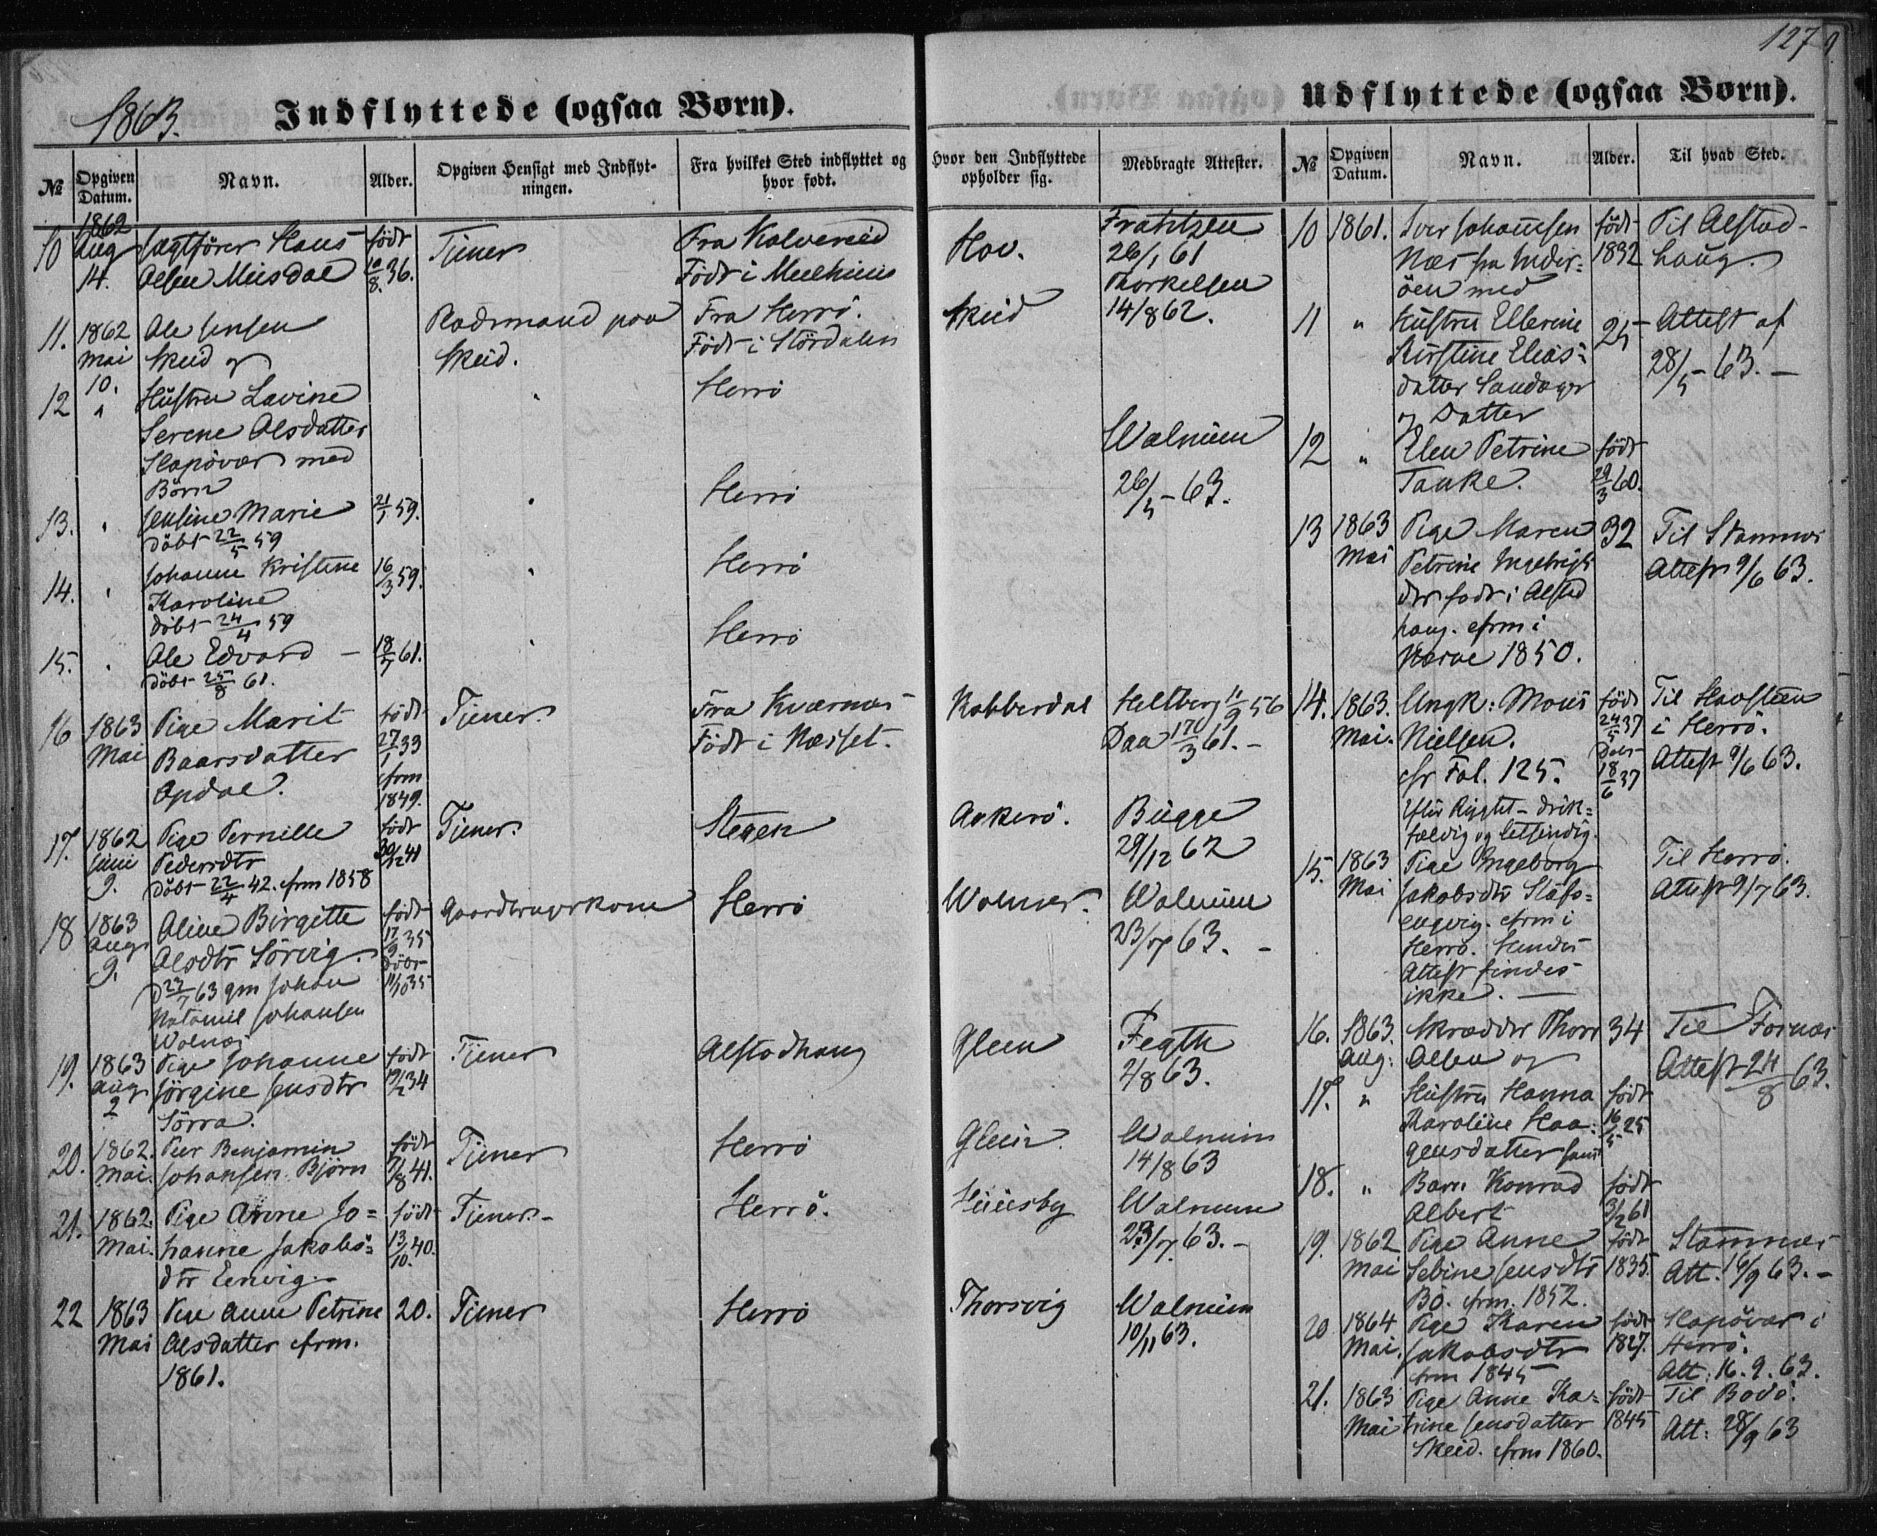 127
1863.
Indflyttede (ogsaa Børn).
№
Opgiven Datum.
Navn.
Alder.
Opgiven Hensigt med Indflyt-
ningen.
Fra hvilket Sted indflyttet og
hvor født.
Hvor den Indflyttede
opholder sig.
Medbragte Attester.
10 1862 Aug 14. Jægtfører Hans født Tjener Fra Kolvereid Hov. Frantzen
Olsen 10/8 36. Født i 26/1 61
Thorkelsen
14/8 62.
11. 1862 Mai 10. Ole Jensen Rodsmand paa Fra Herrö. Skeid
Skeid og Skeid. Født i Stördalen
12 " Hustru Lavine " Herrö
Serene Olsdatter
Slapövær med Walnum
Börn 26/5 - 63.
13. " Jensine Marie 21/1 59. " Herrö
döbt 22/5 59
14. " Johanne Kristine 16/3 59. " Herrö
Karoline
döbt 24/4 59
15. " Ole Edvard - 18/7 61. " Herrö
döbt 25/8 61.
16 1863 Mai Pige Marit født Tjener. Fra Kværnæs Kobberdal Heltberg 11/9 56
Baarsdatter 27/1 33 Født i Næsset. Daa 61. -
Opdal. cfrm 1849.
17. 1862 Juni 9. Pige Pernille født Tjener. Stegen Aakerö. Bugge
Pedersdtr 30/12 41 29/12 62
Döbt 22/4 42. cfrm 1858
18 1863 Aug 9. Aline Birgitte født Gaardbrugerkone Herrö Wolnes. Walnum
Olsdtr Sörvig. 17/9 35 23/7 63. -
63 gm Johan Döbt 11/10 35
Johansen
Wolnæs
19. 1863 Aug 2 Pige Johanne født Tjener Alstadhaug Glein Fegth
Jörgine Jensdtr 34 2/8 63.
Sörra.
20. 1862. Mai. Peer Benjamin født Tjener Herrö Glein Walnum
Johansen Björn 7/8 41. 14/8 63
21. 1862. Mai. Pige Anne Jo= født Tjener. - Herrö. Huusby Walnum
hanne Jakobs= 13/10. 40. 23/7. 63. -
dtr
22 1863 Mai Pige Anne Petrine 20. Tjener Herrö Thorsvig Walnum
Olsdatter cfrm. 10/11 63.
1861.
Udflyttede (ogsaa Børn).
№
Opgiven Datum.
Navn.
Alder.
Til hvad Sted.
10 1861. Iver Johannsen født Til Alstad-
Næs fra Inder- 1832 haug.
öen med
11 " Hustru Ellerine 25 Attest af
Kirstine Elias= 28/5 - 63. -
datter Sandager
og Datter
12 " Elen Petrine født
Tanke. 29/3 60.
13 1863 Mai Pige Maren 32 Til Stamnes
Petrine Ingebrigt Attest 9/6 63.
dtr født i Alstad
haug. cfrm i
Nærøe 1850.
14. 1863. Mai. Ungk: Mons født Til Havsteen
Nielsen. 24/5 37 i Herrö.
cfr Fol. 125. Döbt 18/6 37 Attest 9/6 63.
Efter Rygtet - drik=
fældig og letsindig.
15. 1863 Mai Pige Ingeborg Til Herrö.
Jakobsdtr Attest 9/7 63.
cfrm i
Herrö. Hendes
Attest findes
ikke. -
16. 1863. Aug: Skrædder Thor 34 Til Fornæs
Olsen og Attest 24/8 63.
17. " Hustru Hanna født
Karoline Haa- 16/5 25
gensdatter samt
18. " Barn Konrad født
Albert 3/2 61
19. 1862 Mai Pige Anne født Stamnes
Sebine Jensdtr 1835. Att. 16/9 63. -
Bö. cfrm. 1852.
20 1864 Mai. Pige Karen født Slapövær i
Jakobsdtr 1827. Herrö.
cfrm 1845 Att: 16. 9. 63.
21. 1863 Mai Pige Anne Ka= født Til Bodö.
trine Jensdatter 1845 Att: 28/9 63
Skeid. cfrm 1860.